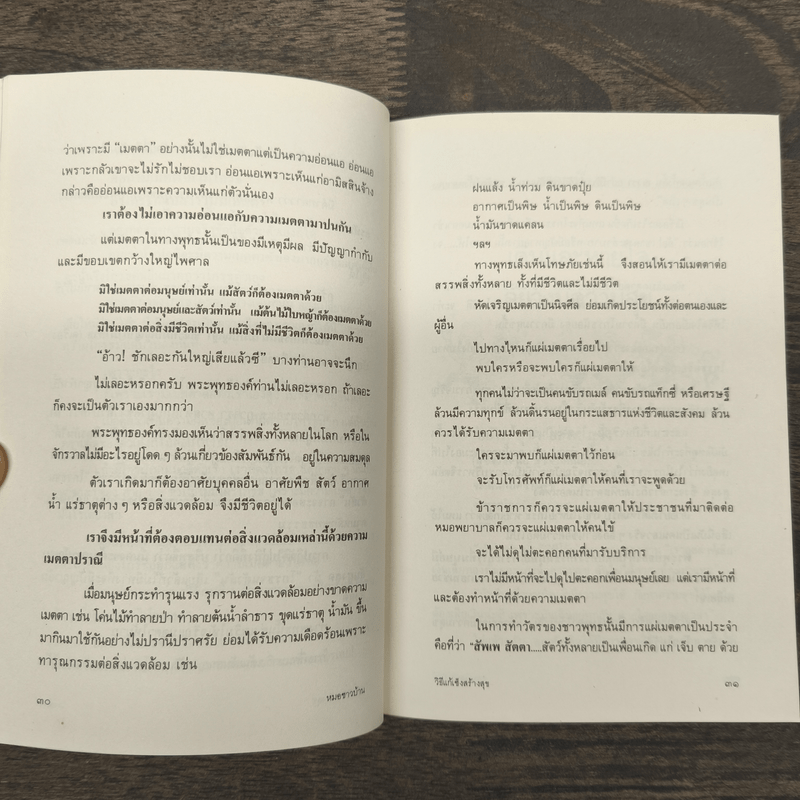 ว่าเพราะมี "เมตตา" อย่างนั้นไม่ใช่เมตตาแต่เป็นความอ่อนแอ อ่อนแอ
เพราะกลัวเขาจะไม่รักไม่ชอบเรา อ่อนแอเพราะเห็นแก่อามิสสินจ้าง
กล่าวคืออ่อนแอเพราะความเห็นแก่ตัวนั่นเอง
เราต้องไม่เอาความอ่อนแอกับความเมตตามาปนกัน
แต่เมตตาในทางพุทธนั้นเป็นของมีเหตุมีผล มีปัญญากำกับ
และมีขอบเขตกว้างใหญ่ไพศาล
มิใช่เมตตาต่อมนุษย์เท่านั้น แม้สัตว์ก็ต้องเมตตาด้วย
มิใช่เมตตาต่อมนุษย์และสัตว์เท่านั้น แม้ต้นไม้ใบหญ้าก็ต้องเมตตาด้วย
มิใช่เมตตาต่อสิ่งมีชีวิตเท่านั้น แม้สิ่งที่ไม่มีชีวิตก็ต้องเมตตาด้วย
"อ้าว! ชักเลอะกันใหญ่เสียแล้วซี" บางท่านอาจจะนึก
ไม่เลอะหรอกครับ พระพุทธองค์ท่านไม่เลอะหรอก ถ้าเลอะ
ก็คงจะเป็นตัวเราเองมากกว่า
พระพุทธองค์ทรงมองเห็นว่าสรรพสิ่งทั้งหลายในโลก หรือใน
จักรวาลไม่มีอะไรอยู่โดด ๆ ล้วนเกี่ยวข้องสัมพันธ์กัน อยู่ในความสมดุล
ตัวเราเกิดมาก็ต้องอาศัยบุคคลอื่น อาศัยพืช สัตว์ อากาศ
น้ำ แร่ธาตุต่าง ๆ หรือสิ่งแวดล้อม จึงมีชีวิตอยู่ได้
เราจึงมีหน้าที่ต้องตอบแทนต่อสิ่งแวดล้อมเหล่านี้ด้วยความ
เมตตาปราณี
เมื่อมนุษย์กระทำรุนแรง รุกรานต่อสิ่งแวดล้อมอย่างขาดความ
เมตตา เช่น โค่นไม้ทำลายป่า ทำลายต้นน้ำลำธาร ขุดแร่ธาตุ น้ำมัน ขึ้น
มากินมาใช้กันอย่างไม่ปรานีปราศรัย ย่อมได้รับความเดือดร้อนเพราะ
ทารุณกรรมต่อสิ่งแวดล้อม เช่น
๓๐
หมอชาวบ้าน
ฝนแล้ง น้ำท่วม ดินขาดปุ๋ย
อากาศเป็นพิษ น้ำเป็นพิษ ดินเป็นพิษ
น้ำมันขาดแคลน
ฯลฯ
ทางพุทธเล็งเห็นโทษภัยเช่นนี้ จึงสอนให้เรามีเมตตาต่อ
สรรพสิ่งทั้งหลาย ทั้งที่มีชีวิตและไม่มีชีวิต
หัดเจริญเมตตาเป็นนิจศีล ย่อมเกิดประโยชน์ทั้งต่อตนเองและ
ผู้อื่น
ไปทางไหนก็แผ่เมตตาเรื่อยไป
พบใครหรือจะพบใครก็แผ่เมตตาให้
ทุกคนไม่ว่าจะเป็นคนขับรถเมล์ คนขับรถแท็กซี่ หรือเศรษฐี
ล้วนมีความทุกข์ ล้วนดิ้นรนอยู่ในกระแสธารแห่งชีวิตและสังคม ล้วน
ควรได้รับความเมตตา
ใครจะมาพบก็แผ่เมตตาไว้ก่อน
จะรับโทรศัพท์ก็แผ่เมตตาให้คนที่เราจะพูดด้วย
ข้าราชการก็ควรจะแผ่เมตตาให้ประชาชนที่มาติดต่อ
หมอพยาบาลก็ควรจะแผ่เมตตาให้คนไข้
จะได้ไม่ดุไม่ตะคอกคนที่มารับบริการ
เราไม่มีหน้าที่จะไปดุไปตะคอกเพื่อนมนุษย์เลย แต่เรามีหน้าที่
และต้องทำหน้าที่ด้วยความเมตตา
ในการทำวัตรของชาวพุทธนั้นมีการแผ่เมตตาเป็นประจำ
คือที่ว่า "สัพเพ สัตตา.....สัตว์ทั้งหลายเป็นเพื่อนเกิด แก่ เจ็บ ตาย ด้วย
วิธีแก้เซ็งสร้างสุข
๓๑